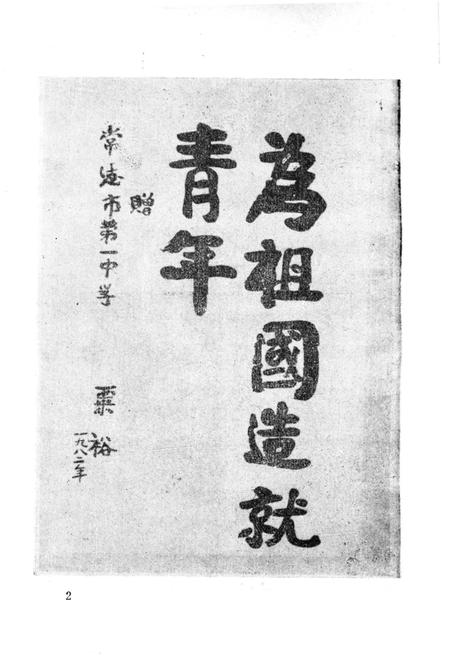 為祖國造就
青年
贈
常德市第一中学
粟裕
一九八二年
2